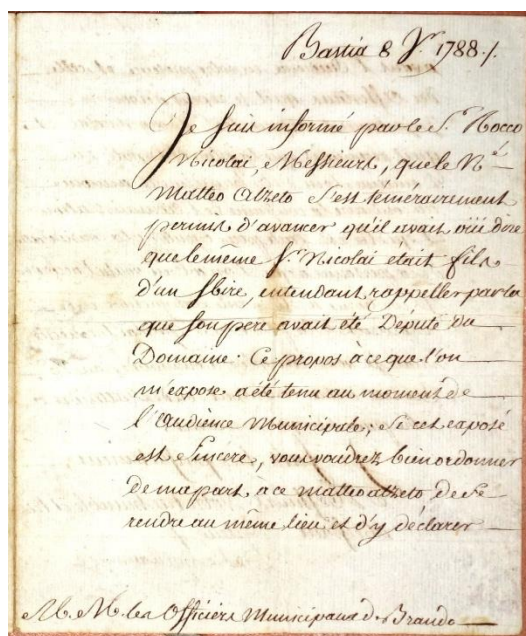 Bastia 8 J.r 1788./.
Je suis informé par le S.r Rocco
Nicolai, Messieurs, que le N.é
Matteo Alzeto s'est témérairement
permis d'avancer qu'il avait oüi dire
que le même S.r Nicolai était fils
d'un sbire, entendant rappeller par la
que son pere avait été Député du
Domaine. Ce propos à ce que l'on
m'expose a été tenu au moment de
l'audience Municipale; Si cet exposé
est Sincere, vous voudrez bien ordonner
de ma part a ce matteo alzeto de se
rendre au même lieu et d'y déclarer
M. M. les Officiers Municipaux de Brando